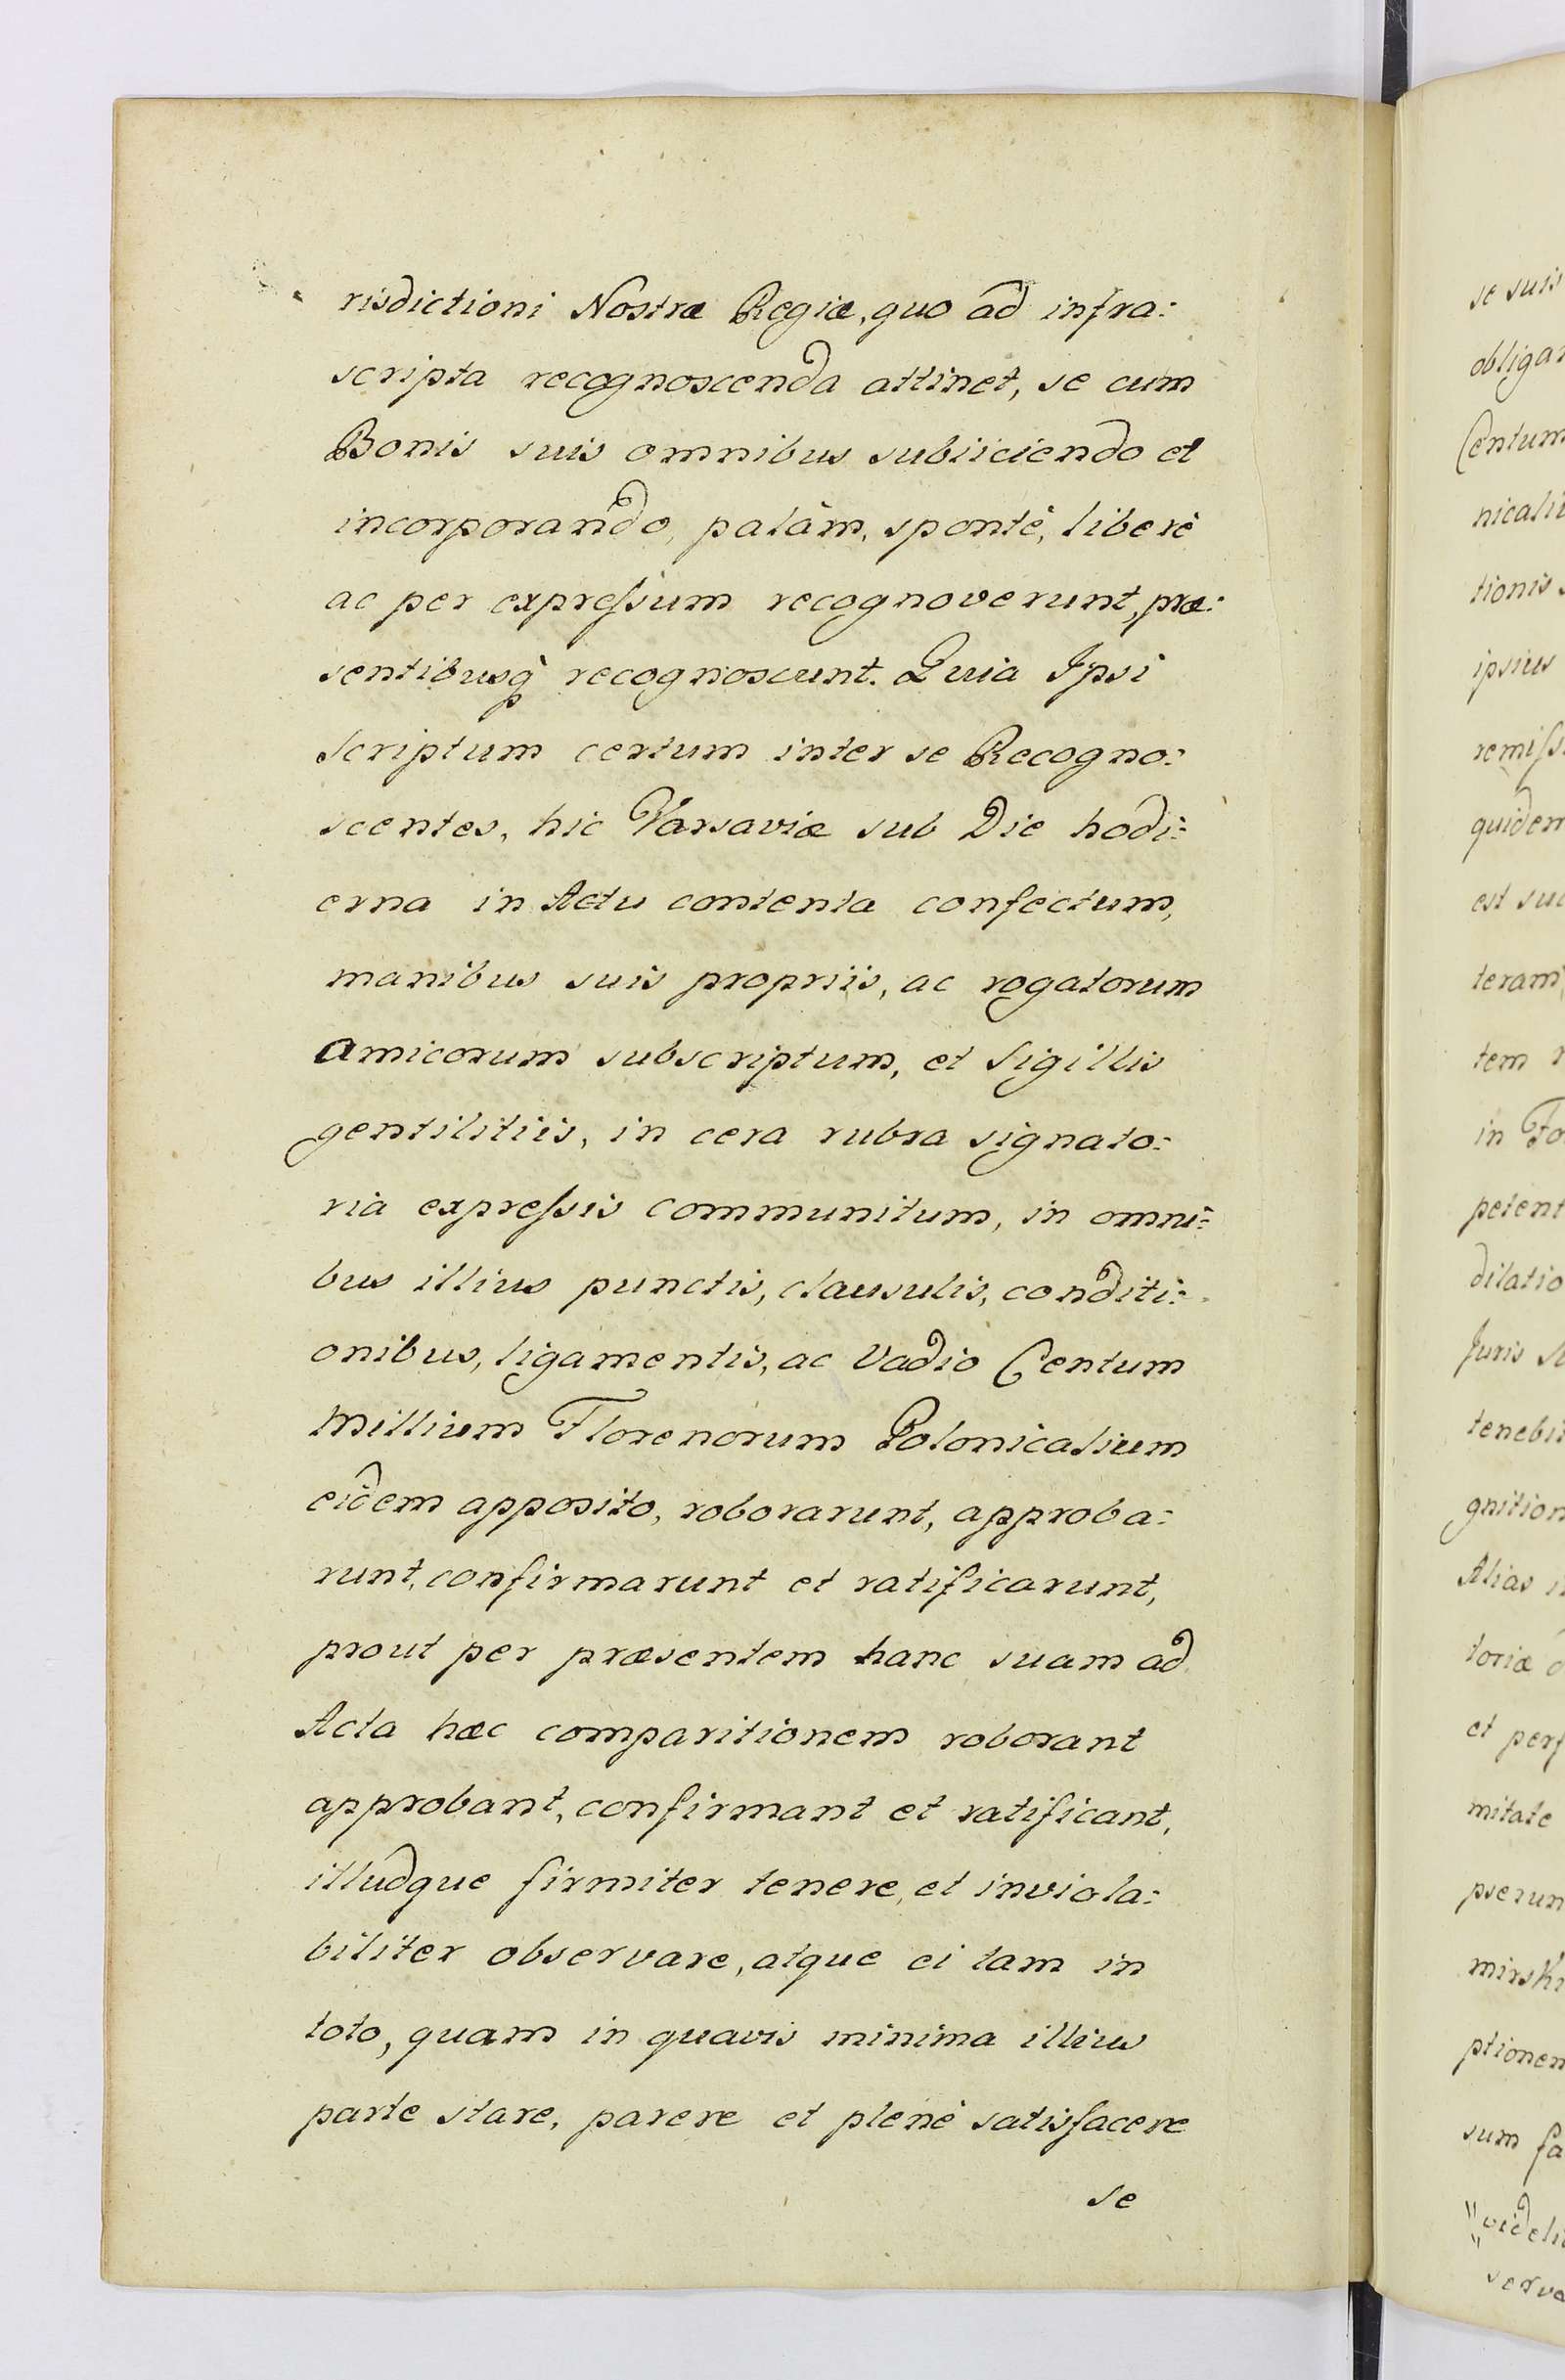 risdictioni Nostræ Regiæ, quo ad infra:
scripta recognoscenda attinet, se cum
Bonis suis omnibus subiiciendo et
incorporando, palàm, spontè, liberè
ac per expreſsum recognoverunt, præ:
sentibusq̀ recognoscunt. Quia Ipsi
Scriptum certum inter se Recogno:
scentes, hic Varsaviæ sub Die hodi:
erna in Actu contenta confectum,
manibus suis propriis, ac rogatorum
Amicorum subscriptum, et Sigillis
gentilitiis, in cera rubra signato:
ria expreſsis communitum, in omni:
bus illius punctis, clausulis, conditi:
onibus, ligamentis, ac Vadio Centum
Millium Florenorum Polonicalium
eidem apposito, roborarunt, approba:
runt, confirmarunt et ratificarunt,
prout per præsentem hanc suam ad
Acta hæc comparitionem roborant
approbant, confirmant et ratificant,
illudque firmiter tenere, et inviola:
biliter observare, atque ei tam in
toto, quam in quavis minima illius
parte stare, parere et plenè satisfacere
se
se suis
obligar
Centum
nicaliu
tionis
ipsius
remiſs
quidem
est suc
teram
tem
in Fo
petent
dilatio
Juris
tenebi
gnition
Alias
toriæ
et perf
mitate
pserun
mirski
ptionem
sum fa
"videli
"serva